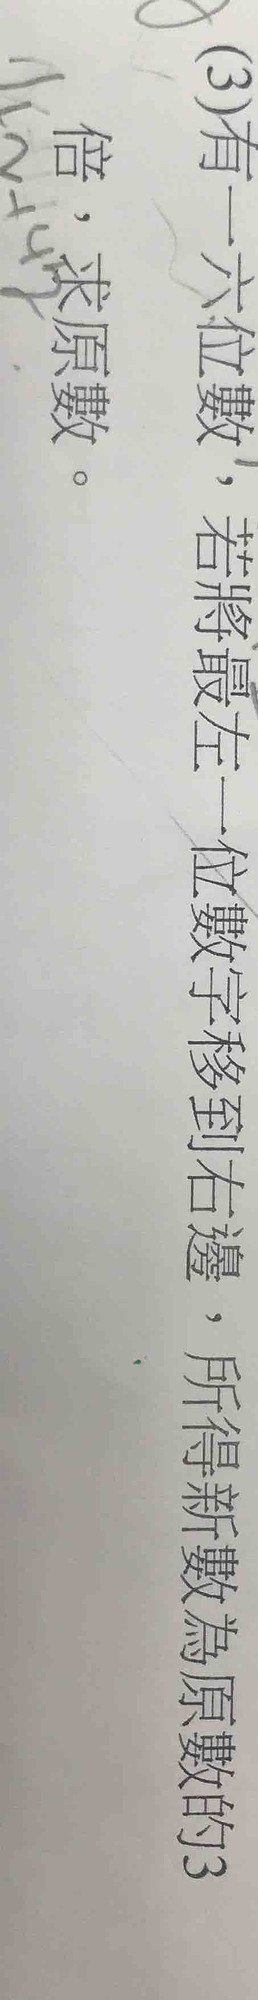 (3)有一六位數，若將最左一位數字移到右邊，所得新數為原數的3
倍，求原數。